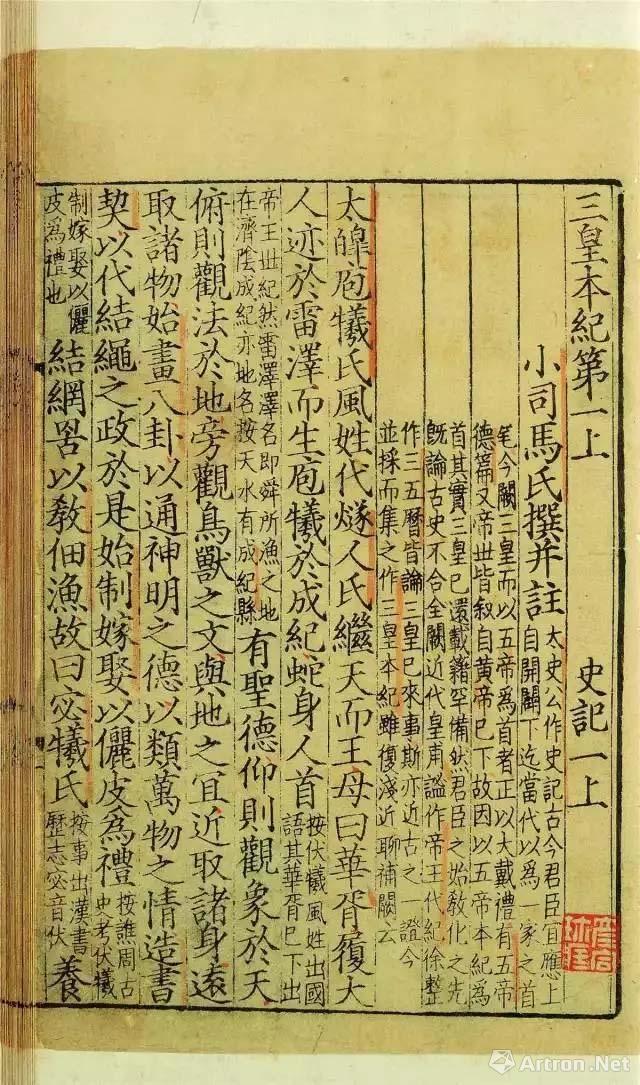 三皇本紀第一上 史記一上
小司馬氏撰并註
太史公作史記古今君臣宜應上
自開闢下迄當代以為一家之首
尾今闕三皇而以五帝為首者正以大戴禮有五帝
德篇又帝世皆叙自黃帝已下故因以五帝本紀為
首其實三皇已還載籍罕備然君臣之始教化之先
既論古史不合全闕近代皇甫謐作帝王代紀徐整
作三五曆皆論三皇已來事斯亦近古之一證今
並採而集之作三皇本紀雖復淺近聊補闕云
太皥庖犧氏風姓代燧人氏繼天而王母曰華胥履大
人迹於雷澤而生庖犧於成紀蛇身人首
按伏犧風姓出國
語其華胥已下出
帝王世紀然雷澤澤名即舜所漁之地
在濟陰成紀亦地名按天水有成紀縣
有聖德仰則觀象於天
俯則觀法於地旁觀鳥獸之文與地之冝近取諸身遠
取諸物始畫八卦以通神明之德以類萬物之情造書
契以代結繩之政於是始制嫁娶以儷皮為禮
按譙周古
史考伏犧
制嫁娶以儷
皮為禮也
結網罟以教佃漁故曰宓犧氏
按事出漢書
歷志宓音伏
養
Artron.Net